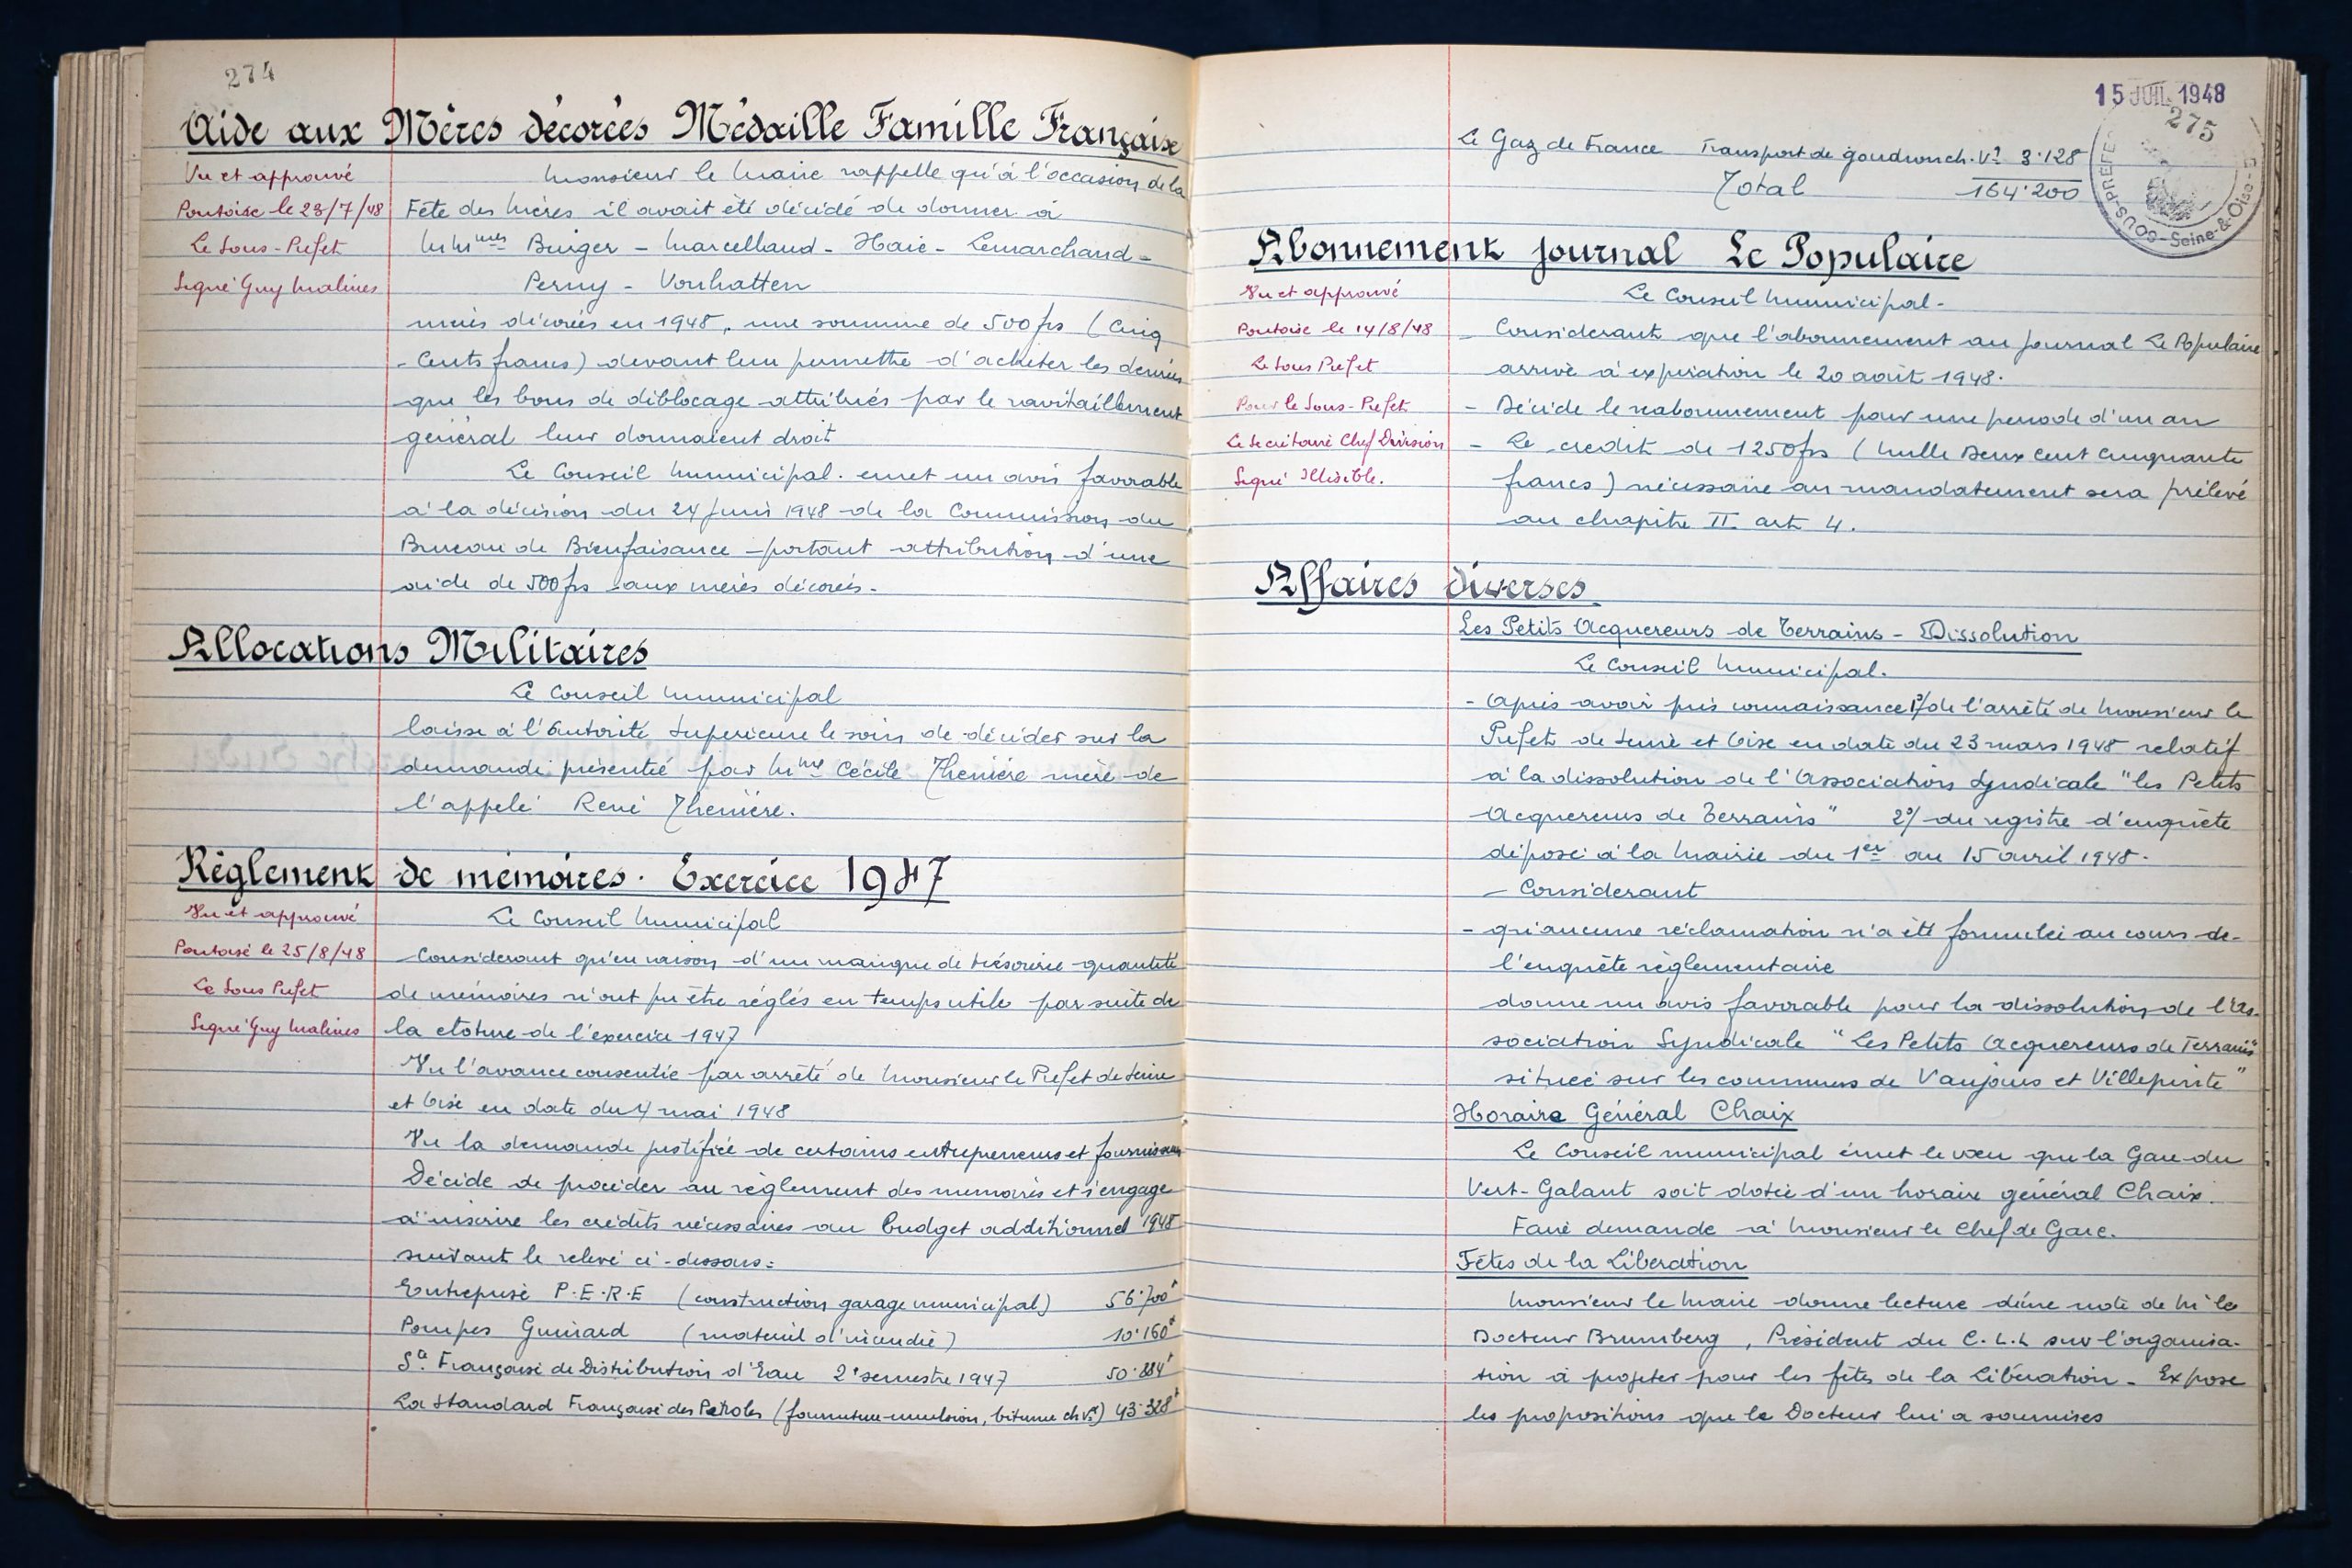 274
Aide aux Mères décorées Médaille Famille Française
Vu et approuvé
Pontoise le 23/7/48
Le Sous-Préfet
Signé Guy Malines
Monsieur le Maire rappelle qu'à l'occasion de la
Fête des Mères il avait été décidé de donner à
MMmes Burger - Marcelland - Haie - Lemarchand -
Perny - Vonhatten
mères décorées en 1948, une somme de 500 frs (Cinq
- Cents francs) devant leur permettre d'acheter les denrées
que les bons de déblocage attribués par le ravitaillement
général leur donnaient droit
Le Conseil Municipal. émet un avis favorable
à la décision du 24 Juin 1948 de la Commission du
Bureau de Bienfaisance - portant attribution d'une
aide de 500 frs aux mères décorées.
Allocations Militaires
Le Conseil Municipal
laisse à l'Autorité Supérieure le soin de décider sur la
demande présentée par Mme Cécile Thenière mère de
l'appelé René Thenière.
Règlement de mémoires. Exercice 1947
Vu et approuvé
Pontoise le 25/8/48
Le Sous Préfet
Signé Guy Malines
Le Conseil Municipal
Considerant qu'en raison d'un manque de trésorerie quantité
de mémoires n'ont pu être réglés en temps utile par suite de
la cloture de l'exercice 1947
Vu l'avance consentie par arrêté de Monsieur le Préfet de Seine
et Oise en date du 4 mai 1948
Vu la demande justifiée de certains entrepreneurs et fournisseurs
Décide de procéder au règlement des mémoires et s'engage
à inscrire les crédits nécessaires au budget additionnel 1948
suivant le relevé ci-dessous:
Entreprise P.E.R.E (construction garage municipal) 56.700f
Pompes Guinard (matériel d'incendie) 10.160f
Sté Française de Distribution d'Eau 2e semestre 1947 50.884f
La Standard Française des Pétroles (fourniture émulsion, bitume ch. Vx) 43.328f
15 JUIL. 1948
275
SOUS-PRÉFE
Seine-&-Oise
Le Gaz de France Transport de goudron ch. Vx 3.128
Total 164.200
Abonnement journal Le Populaire
Vu et approuvé
Pontoise le 14/8/48
Le Sous Préfet
Pour le Sous-Préfet
Le Secrétaire Chef Division
Signé Illisible.
Le Conseil Municipal -
- Considerant que l'abonnement au journal Le Populaire
arrive à expiration le 20 août 1948.
- Décide le réabonnement pour une periode d'un an
- Le crédit de 1250 frs (Mille Deux Cent Cinquante
francs) nécessaire au mandatement sera prélevé
au chapitre II art 4.
Affaires diverses
Les Petits Acquereurs de Terrains - Dissolution
Le Conseil Municipal.
- Après avoir pris connaissance 1°/ de l'arrêté de Monsieur le
Préfet de Seine et Oise en date du 23 mars 1948 relatif
à la dissolution de l'Association Syndicale "les Petits
Acquereurs de Terrains" 2°/ du registre d'enquête
déposé à la Mairie du 1er au 15 avril 1948.
- Considerant
- qu'aucune réclamation n'a été formulée au cours de
l'enquête règlementaire
donne un avis favorable pour la dissolution de l'As-
sociation Syndicale "Les Petits Acquereurs de Terrains"
située sur les communes de Vaujours et Villepinte"
Horaire Général Chaix
Le Conseil municipal émet le vœu que la Gare du
Vert-Galant soit dotée d'un horaire général Chaix.
Faire demande à Monsieur le Chef de Gare.
Fêtes de la Libération
Monsieur le Maire donne lecture d'une note de M le
Docteur Brumberg, Président du C.L.L sur l'organisa-
tion à projeter pour les fêtes de la Libération - Expose
les propositions que le Docteur lui a soumises